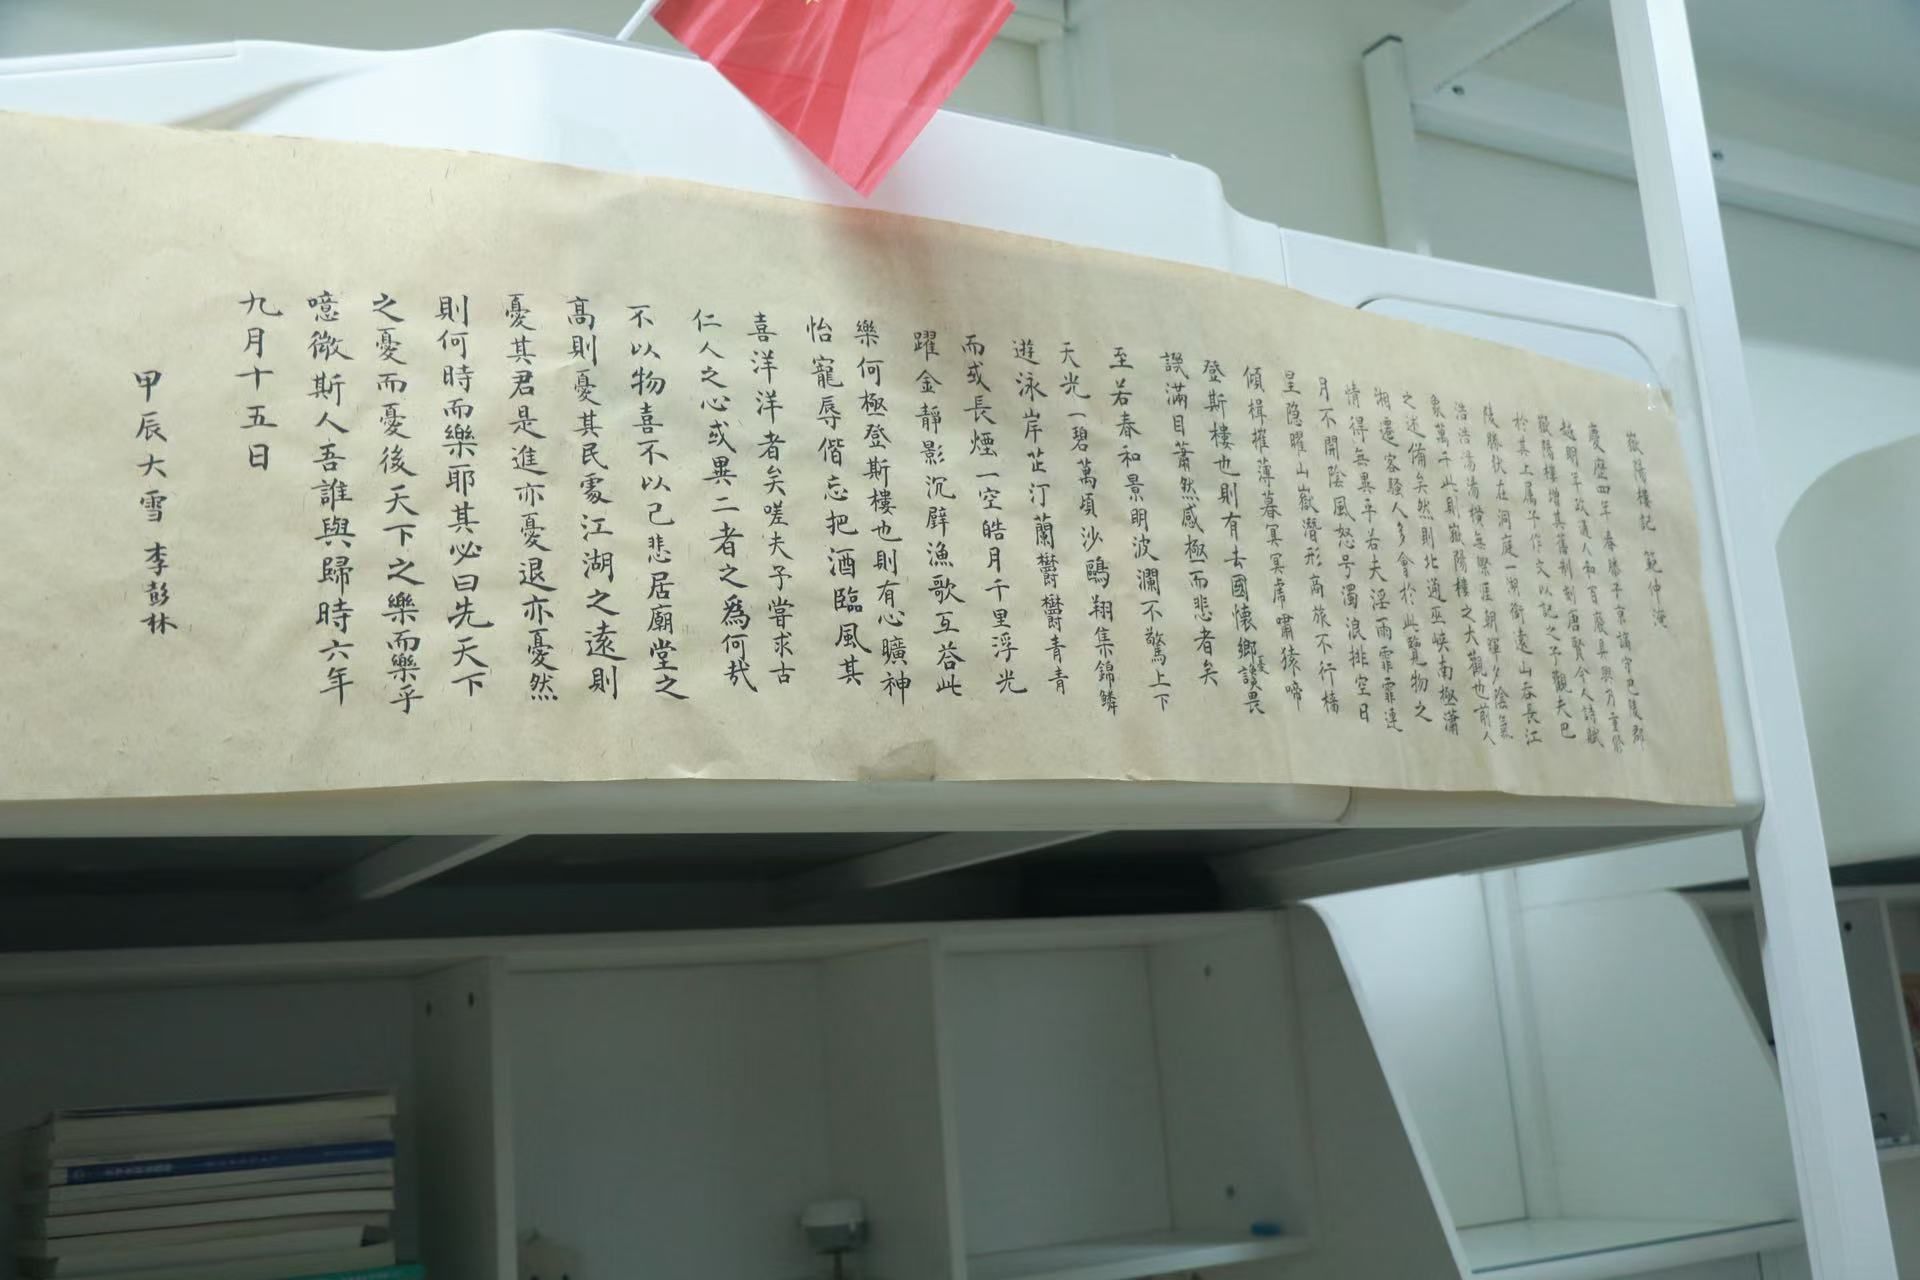 嶽陽樓記 範仲淹
慶歷四年春滕子京謫守巴陵郡
越明年政通人和百廢具興乃重修
嶽陽樓增其舊制刻唐賢今人詩賦
於其上属予作文以記之予觀夫巴
陵勝狀在洞庭一湖銜遠山吞長江
浩浩湯湯橫無際涯朝暉夕陰氣
象萬千此則嶽陽樓之大觀也前人
之述備矣然則北通巫峽南極瀟
湘遷客騷人多會於此覽物之
情得無異乎若夫淫雨霏霏連
月不開陰風怒号濁浪排空日
星隐曜山嶽潛形商旅不行檣
傾楫摧薄暮冥冥虎嘯猿啼
登斯樓也則有去國懷鄉憂讒畏
譏滿目蕭然感極而悲者矣
至若春和景明波瀾不驚上下
天光一碧萬頃沙鷗翔集錦鱗
遊泳岸芷汀蘭欝欝青青
而或長煙一空皓月千里浮光
躍金靜影沉璧漁歌互荅此
樂何極登斯樓也則有心曠神
怡寵辱偕忘把酒臨風其
喜洋洋者矣嗟夫予嘗求古
仁人之心或異二者之為何哉
不以物喜不以己悲居廟堂之
高則憂其民處江湖之遠則
憂其君是進亦憂退亦憂然
則何時而樂耶其必曰先天下
之憂而憂後天下之樂而樂乎
噫微斯人吾誰與歸時六年
九月十五日
甲辰大雪 李彭林